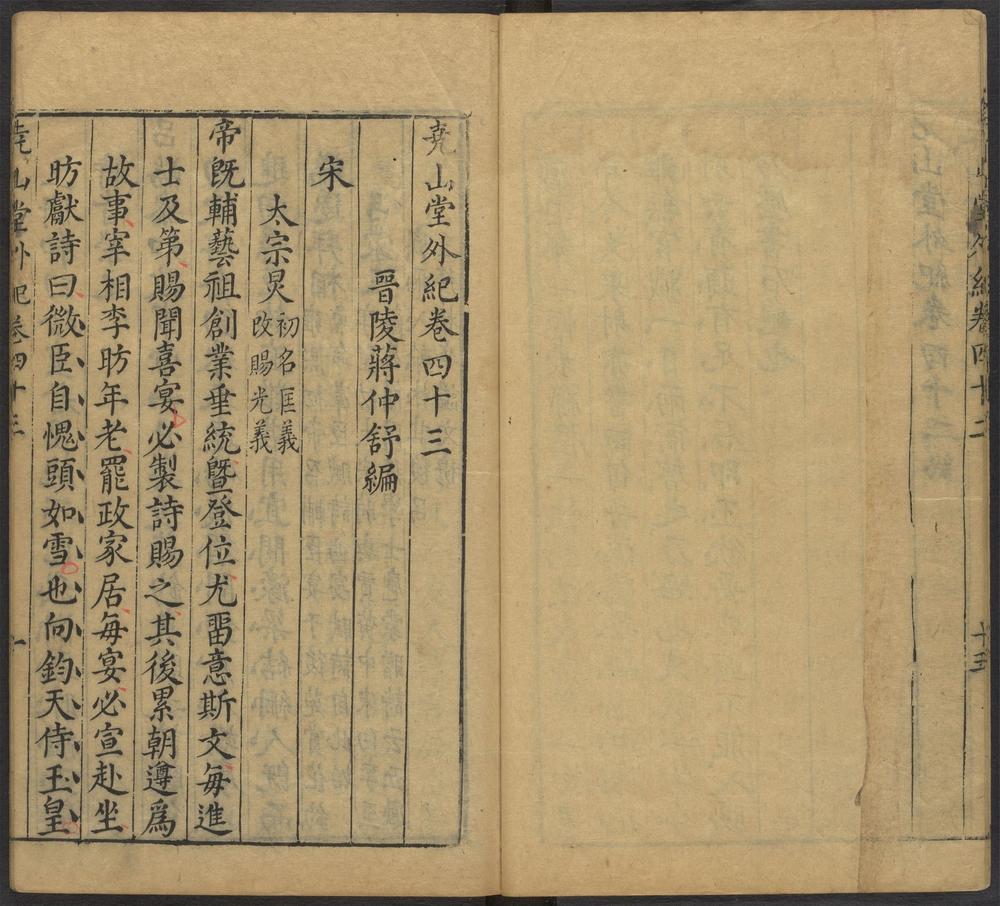 堯山堂外紀卷四十三
晉陵蔣仲舒編
宋
太宗炅
初名匡義
改賜光義
帝旣輔藝祖創業垂統暨登位尤畱意斯文每進
士及第賜聞喜宴必製詩賜之其後累朝遵爲
故事宰相李昉年老罷政家居每宴必宣赴坐
昉獻詩曰微臣自愧頭如雪也向鈞天侍玉皇
堯山堂外紀 卷四十三 一